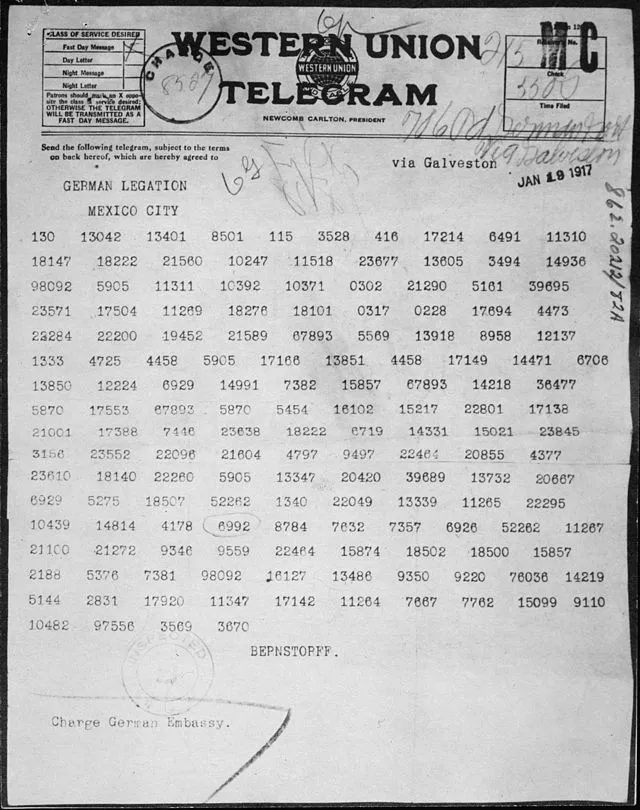 CLASS OF SERVICE DESIRED
Fast Day Message
Day Letter
Night Message
Night Letter
Patrons should mark an X oppo-
site the class of service desired;
OTHERWISE THE TELEGRAM
WILL BE TRANSMITTED AS A
FAST DAY MESSAGE.
CHARGE
WESTERN UNION
WESTERN UNION
TELEGRAM
NEWCOMB CARLTON, PRESIDENT
MC
Receiver's No.
Check
Time Filed
Send the following telegram, subject to the terms
on back hereof, which are hereby agreed to
via Galveston
JAN 19 1917
GERMAN LEGATION
MEXICO CITY
130 13042 13401 8501 115 3528 416 17214 6491 11310
18147 18222 21560 10247 11518 23677 13605 3494 14936
98092 5905 11311 10392 10371 0302 21290 5161 39695
23571 17504 11269 18276 18101 0317 0228 17694 4473
22284 22200 19452 21589 67893 5569 13918 8958 12137
1333 4725 4458 5905 17166 13851 4458 17149 14471 6706
13850 12224 6929 14991 7382 15857 67893 14218 36477
5870 17553 67893 5870 5454 16102 15217 22801 17138
21001 17388 7446 23638 18222 6719 14331 15021 23845
3156 23552 22096 21604 4797 9497 22464 20855 4377
23610 18140 22260 5905 13347 20420 39689 13732 20667
6929 5275 18507 52262 1340 22049 13339 11265 22295
10439 14814 4178 6992 8784 7632 7357 6926 52262 11267
21100 21272 9346 9559 22464 15874 18502 18500 15857
2188 5376 7381 98092 16127 13486 9350 9220 76036 14219
5144 2831 17920 11347 17142 11264 7667 7762 15099 9110
10482 97556 3569 3670
BEPNSTOPFF.
Charge German Embassy.